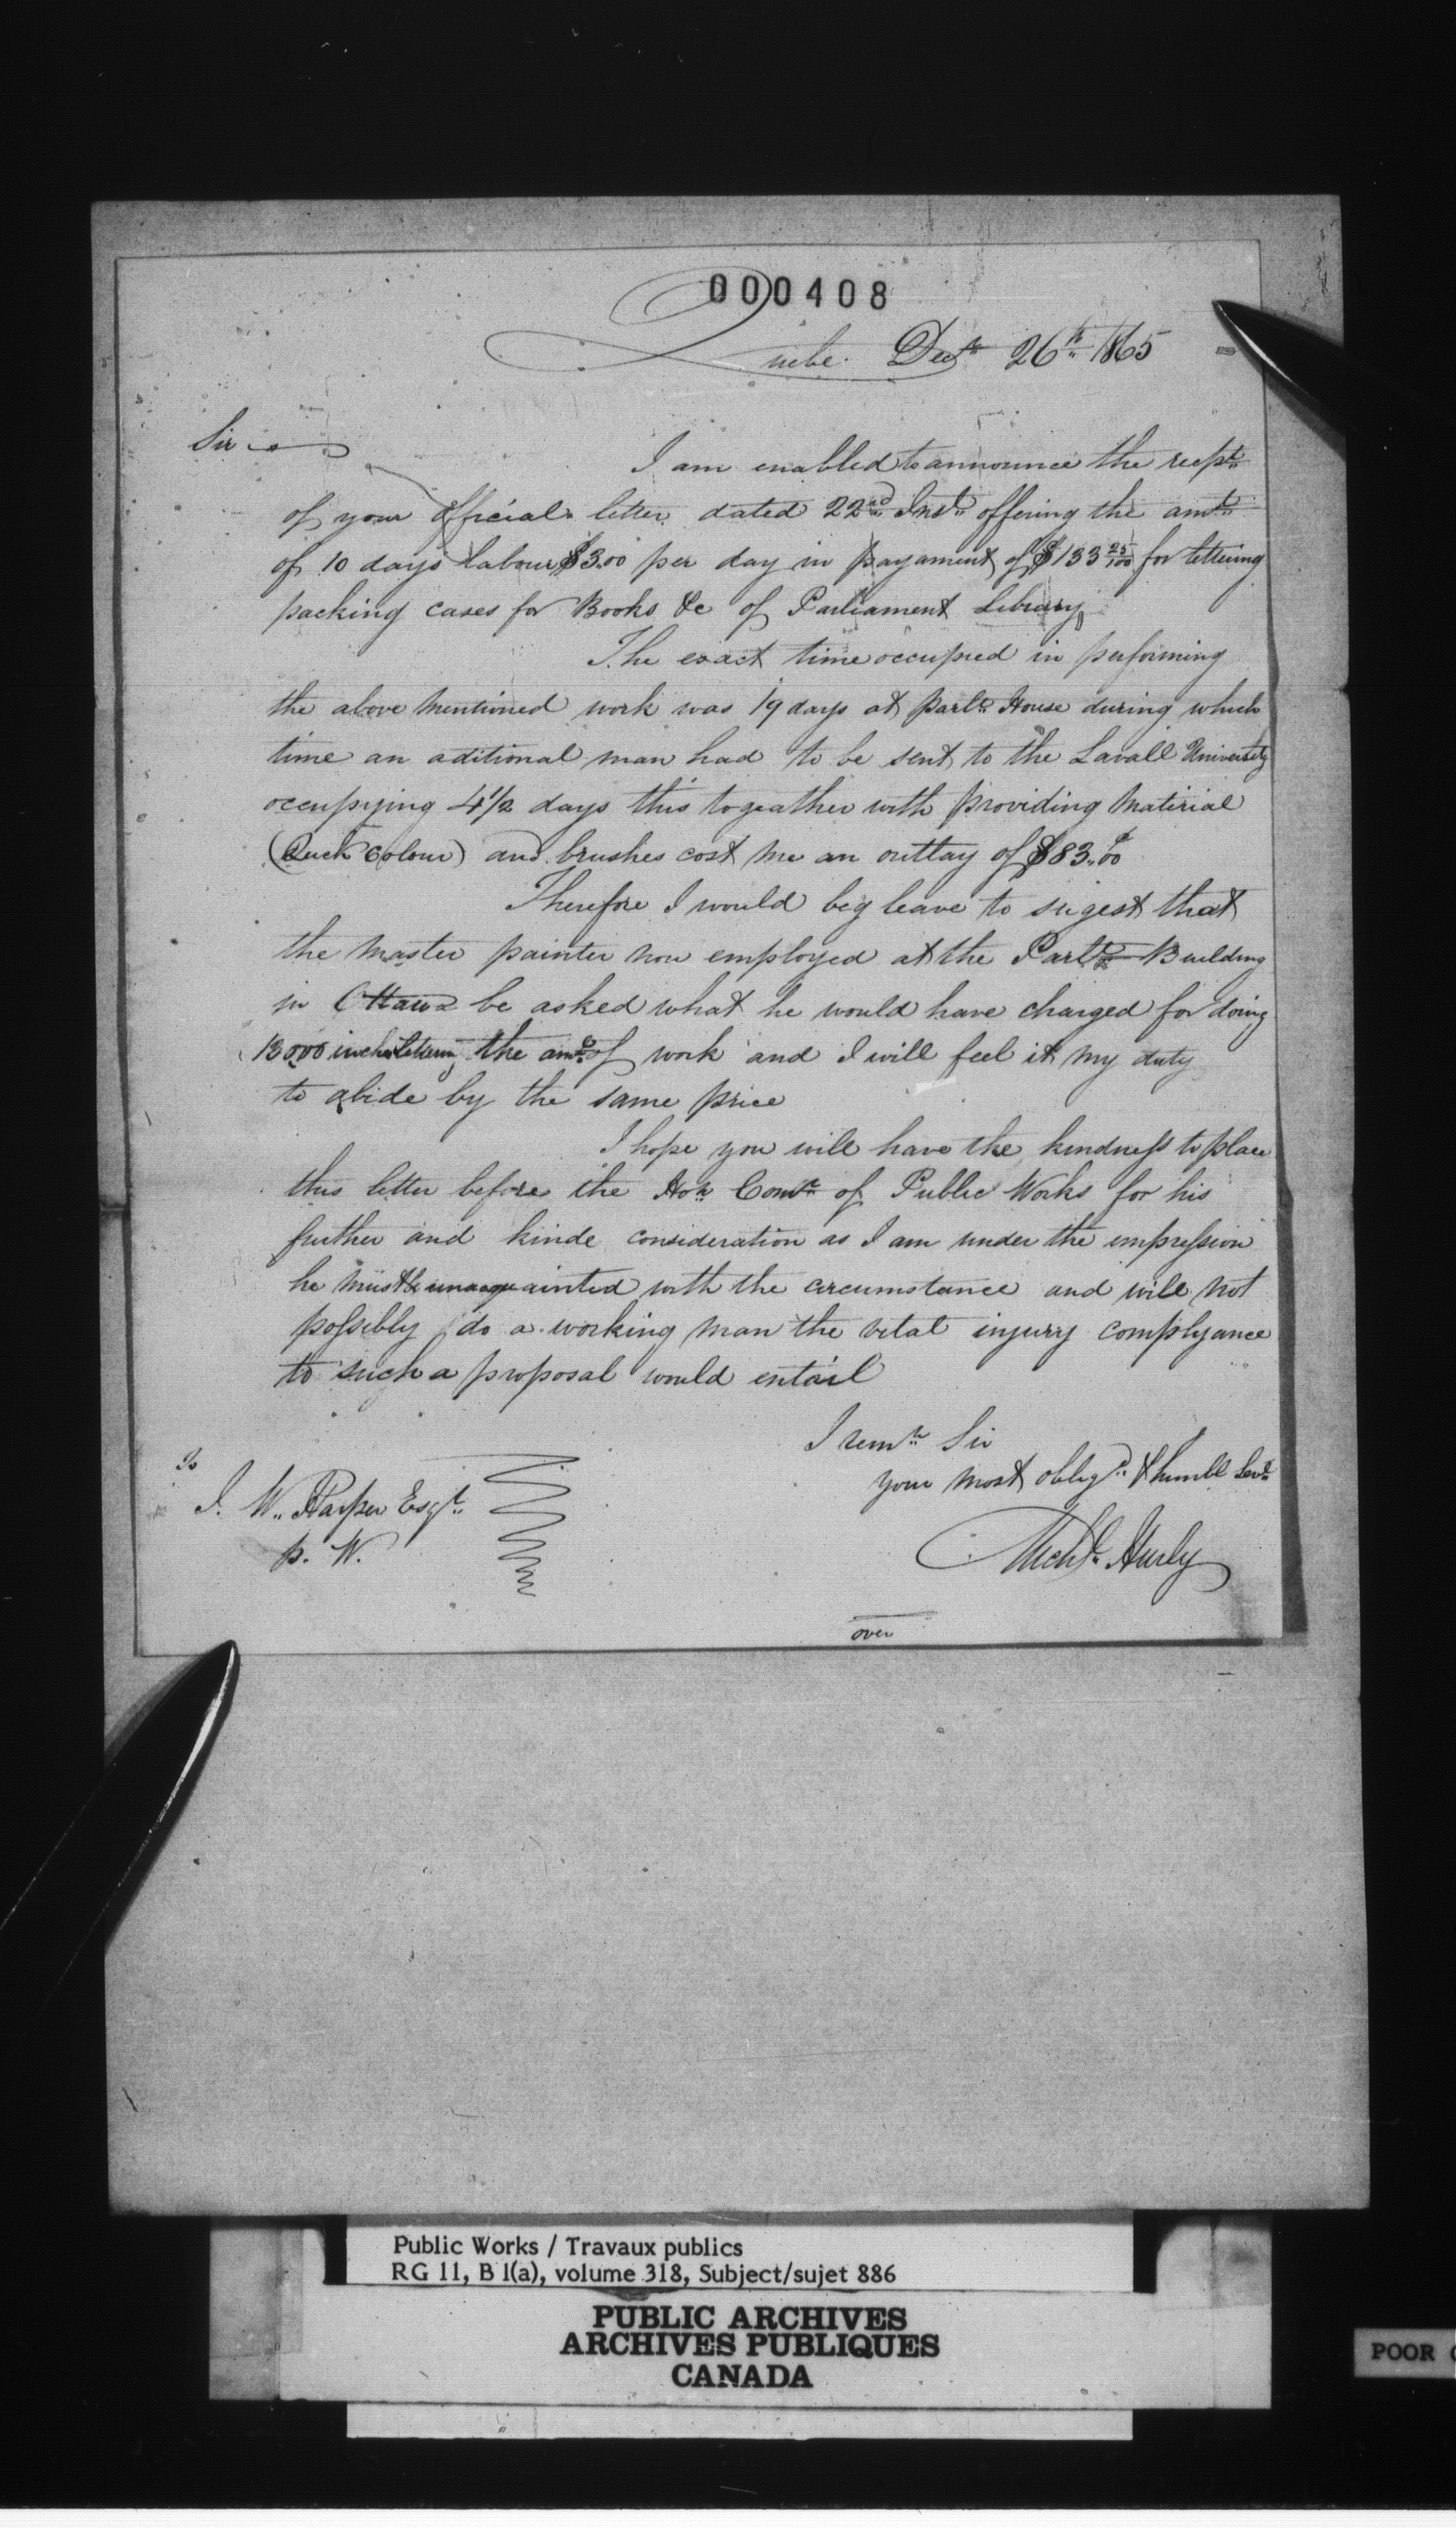 000408
Quebc. Decr 26th 1865
Sir
I am enabled to announce the recpt
of your official letter dated 22nd Inst offering the amt
of 10 days labour $3.00 per day in payament of $133 25/100 for lettering
packing cases for Books &c of Parliament Library
The exact time occupied in performing
the above mentioned work was 19 days at Parlt House during which
time an aditional man had to be sent to the Lavall University
occupying 4 1/2 days this togeather with providing Matirial
(Quick Colour) and brushes cost me an outlay of $83.00
Therefore I would beg leave to sugest that
the Master painter now employed at the Parlt Building
in Ottawa be asked what he would have charged for doing
13000 inch lettering the amt of work and I will feel it my duty
to abide by the same price
I hope you will have the kindness to place
this letter before the Hon Comr of Public Works for his
further and kinde consideration as I am under the impression
he must be unacquainted with the circumstance and will not
possibly do a working man the vital injury complyance
to such a proposal would entail
I remn Sir
your most obligd & humbl Servt
Michl Hurly
To
J. W. Harper Esqr.
p. W.
over
Public Works / Travaux publics
RG 11, B 1(a), volume 318, Subject/sujet 886
PUBLIC ARCHIVES
ARCHIVES PUBLIQUES
CANADA
POOR